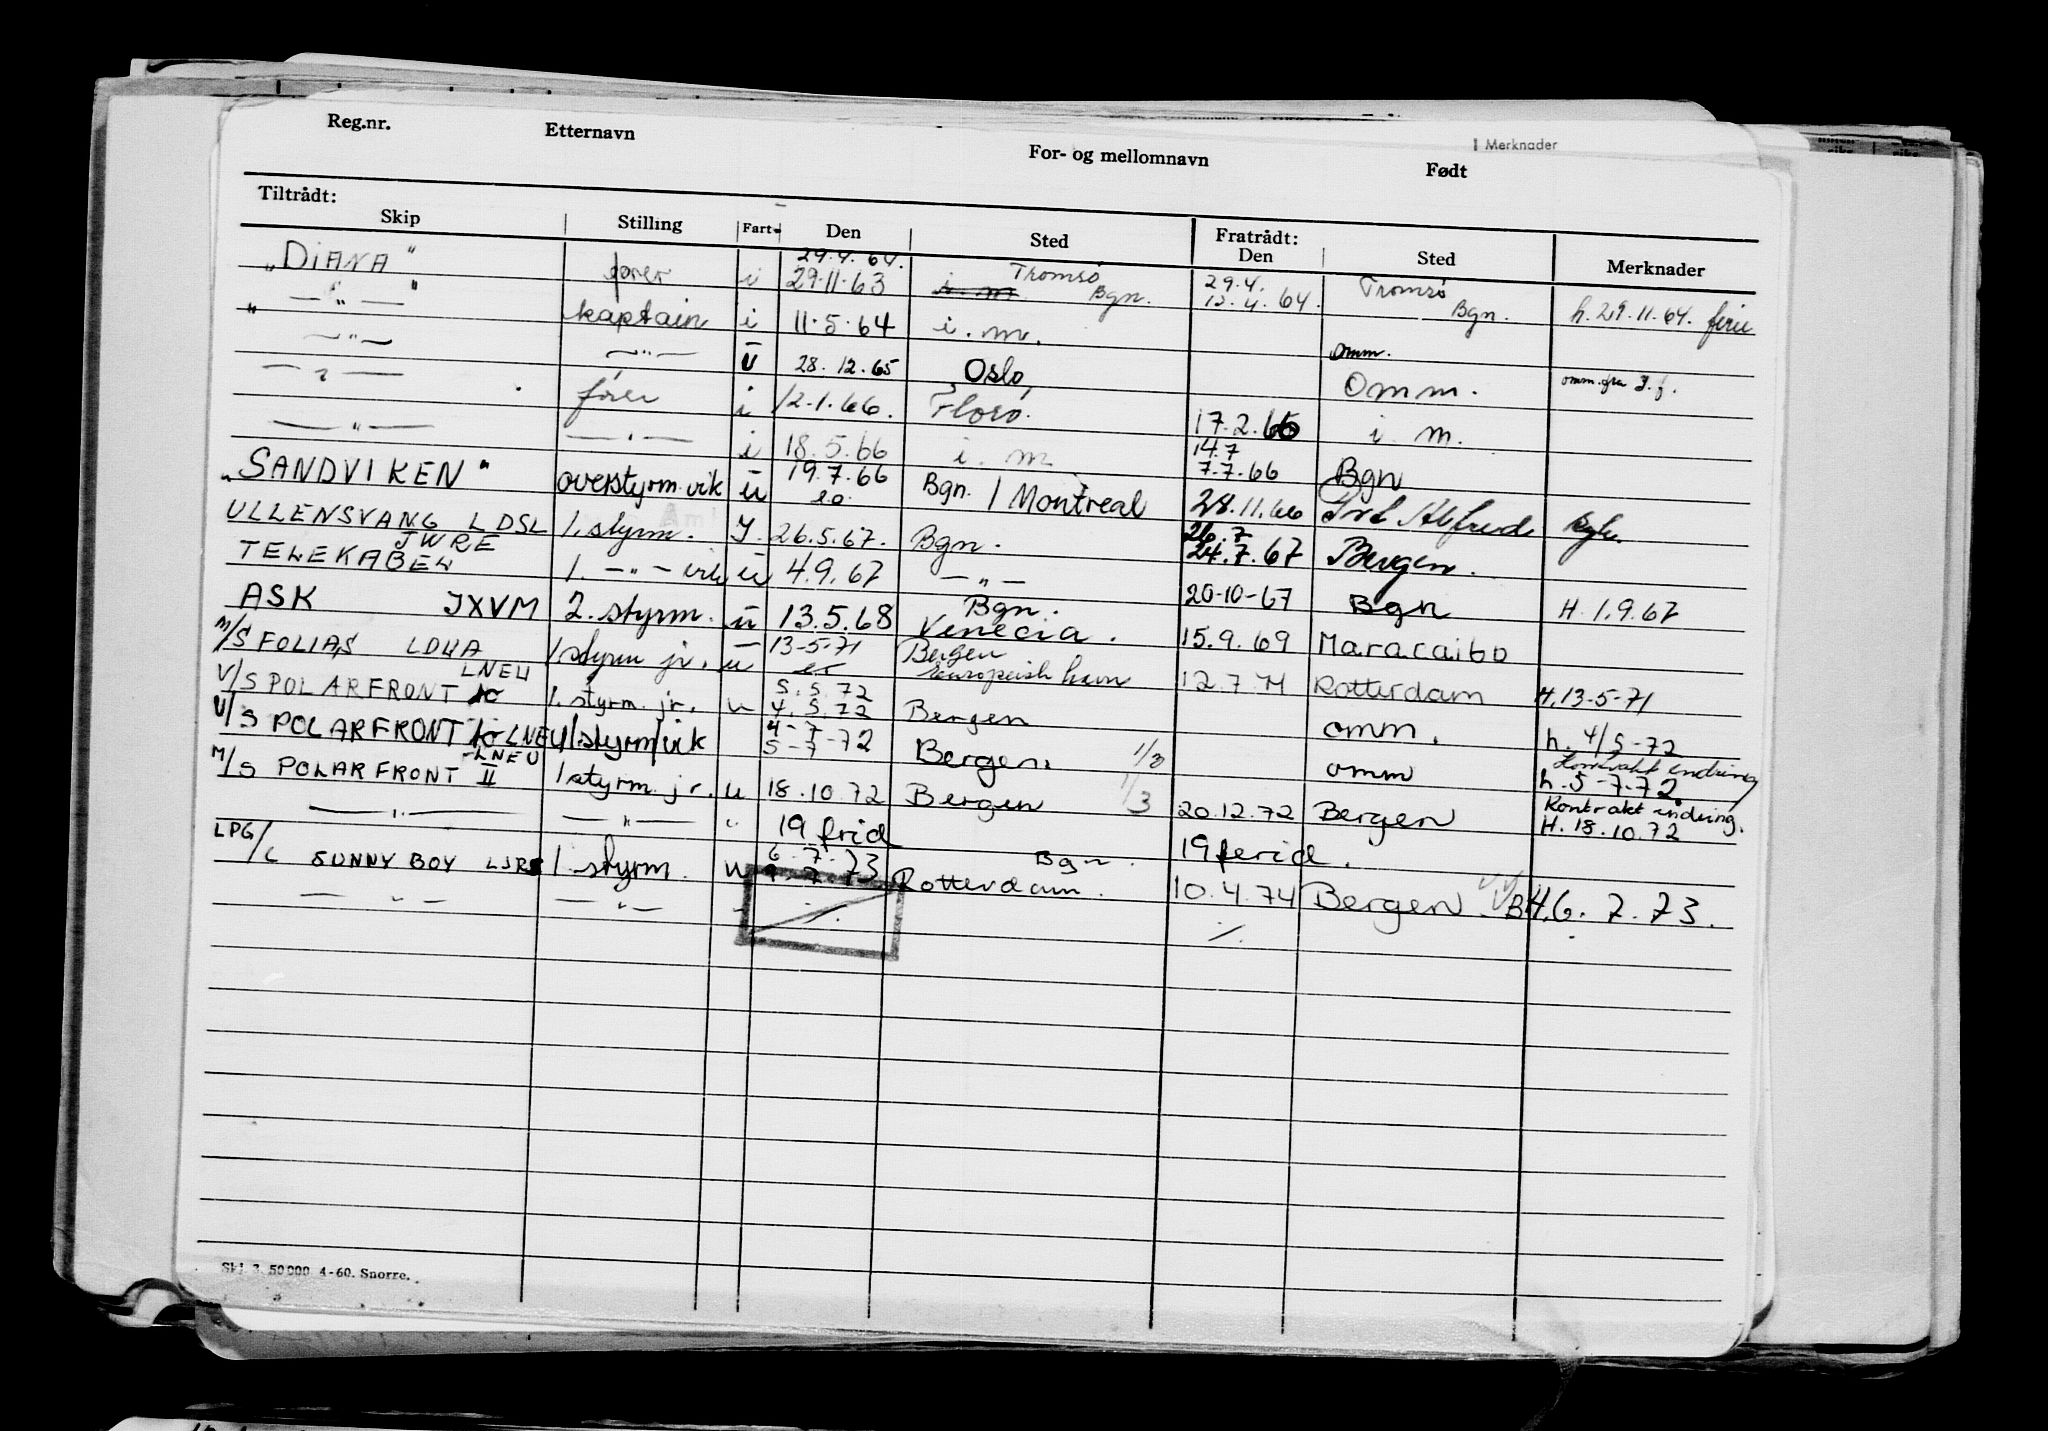 Reg.nr. Etternavn For- og mellomnavn Født Merknader
Tiltrådt: Fratrådt:
Skip Stilling Fart Den Sted Den Sted Merknader
29.4.64. Tromsø 29.4. Tromsø
"DIANA" fører i 29.11.63 i. m. Bgn. 12.4.64. Bgn. h.29.11.64. ferie
" — " — " kaptain i 11.5.64 i. m. omm.
— " — — " — ū 28.12.65 Oslo Omm. omm. fra I.f.
— " — fører i 12.1.66. Florø. 17.2.66 i. m.
— " — — " — i 18.5.66 i. m 14.7
7.7.66 Bgn
"SANDVIKEN" overstyrm. vik ū 19.7.66 Bgn. / Montreal 28.11.66 Port Alfred
ULLENSVANG LDSL 1. styrm. I. 26.5.67. Bgn. 26.7
24.7.67 Bergen.
JWRE
TELEKABEL 1. — " — vik ū 4.9.67 — " — 20-10-67 Bgn H. 1.9.67
ASK JXVM 2. styrm. ū 13.5.68 Bgn.
Venecia. 15.9.69 Maracaibo
M/S FOLIAS 1 styrm jr. ū 13-5-71 Bergen
europeisk havn 12.7.71 Rotterdam H.13-5-71
LNEU
V/S POLARFRONT 1. styrm. jr. u 5.5.72
4.5.72 Bergen omm. h. 4/5-72
V/S POLARFRONT LNEU 1. styrm/vik 4-7
5-7-72 Bergen. 1/3 omm Kontrakt endring
h. 5-7-72
LNEU
M/S POLARFRONT II 1 styrm. jr. u 18.10.72 Bergen 1/3 20.12.72 Bergen Kontrakt endring.
H. 18.10.72
— " — — " — " 19 frid 19 ferid.
LPG/C SUNNY BOY 1. styrm. u 6.7.73 Bgn.
Rotterdam. 10.4.74 Bergen H.6.7.73.
— " — — " — " ./. ./.
Skj. 3. 50 000. 4-60. Snorre.